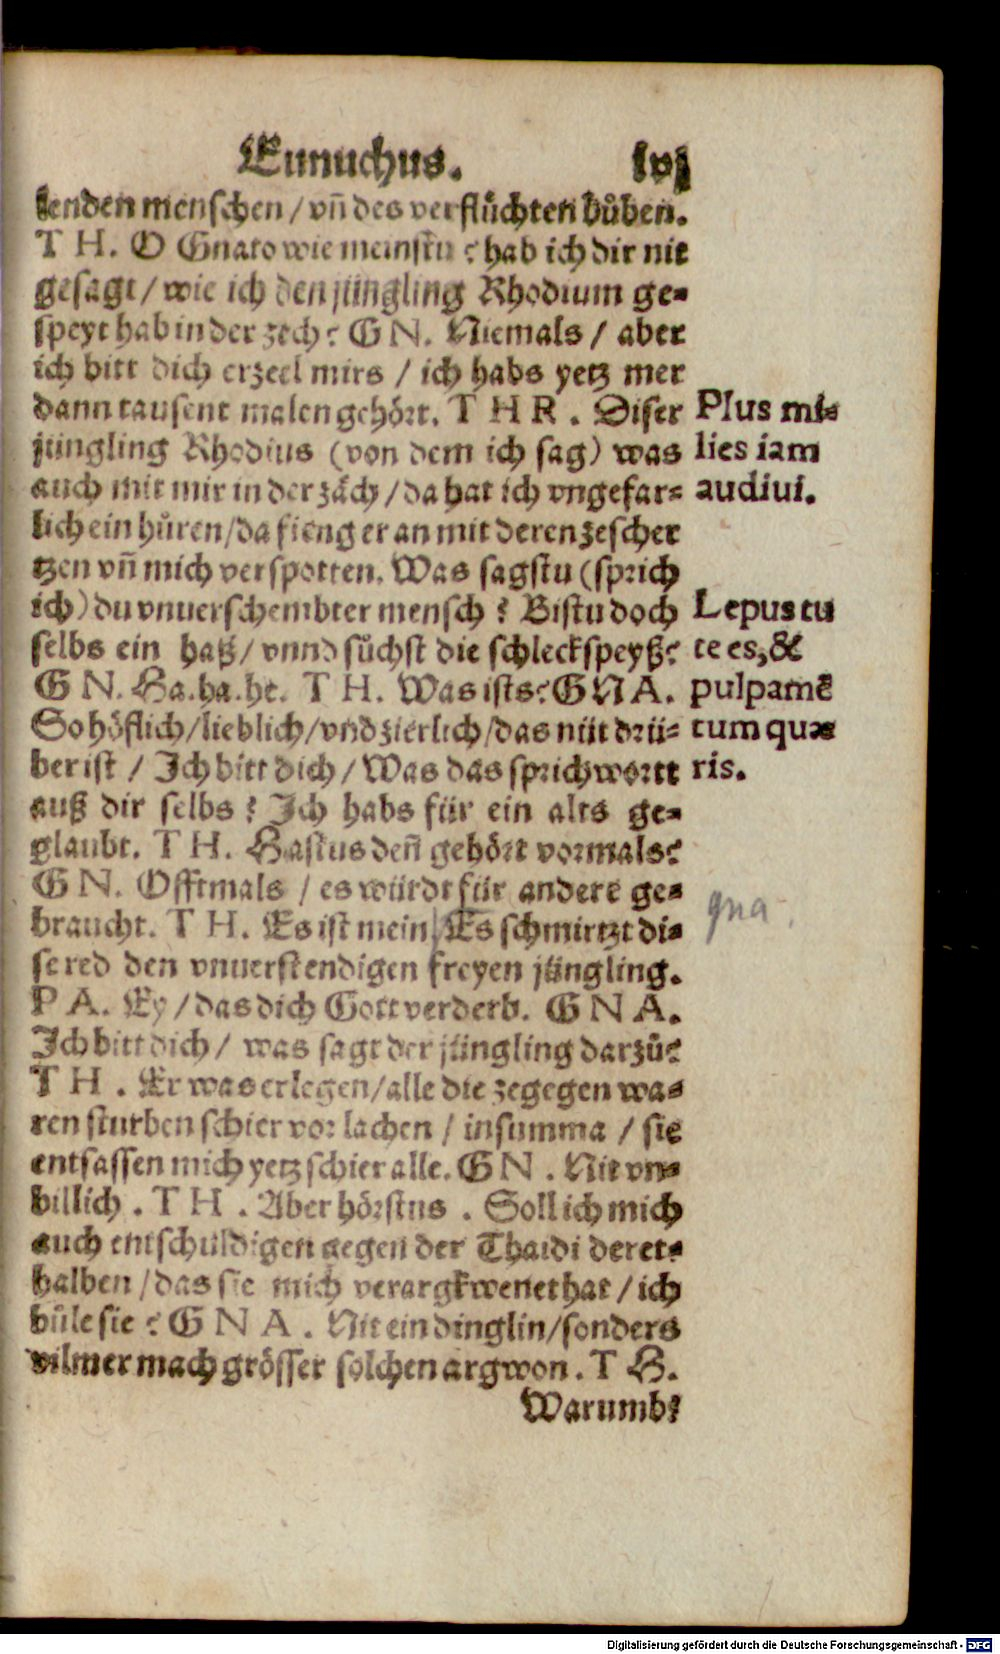 Eunuchus. lvj
lenden menschen / vñ des verflůchten bůben.
T H. O Gnato wie meinstu ? hab ich dir nit
gesagt / wie ich den jüngling Rhodium ge=
speyt hab in der zech ? G N. Niemals / aber
ich bitt dich erzeel mirs / ich habs yetz mer
dann tausent malen gehört. T H R . Diser
jüngling Rhodius (von dem ich sag) was
auch mit mir in der zäch / da hat ich vngefar=
lich ein hůren / da fieng er an mit deren zescher
tzen vñ mich verspotten. Was sagstu (sprich
ich) du vnuerschembter mensch ? Bistu doch
selbs ein haß / vnnd sůchst die schleckspeyß ?
G N. Ha. ha. he. T H. Was ists ? G N A .
So höflich / lieblich / vnd zierlich / das nüt drü=
ber ist / Ich bitt dich / Was das sprichwortt
auß dir selbs ? Ich habs für ein alts ge=
glaubt. T H. Hastus deñ gehört vormals ?
G N. Offtmals / es würdt für andere ge=
braucht. T H. Es ist mein / Es schmirtzt di=
se red den vnuerstendigen freyen jüngling.
P A. Ey / das dich Gott verderb. G N A.
Ich bitt dich / was sagt der jüngling darzů ?
T H . Er was erlegen / alle die zegegen wa=
ren sturben schier vor lachen / insumma / sie
entsassen mich yetz schier alle. G N . Nit vn=
billich . T H . Aber hörstus . Soll ich mich
auch entschuldigen gegen der Thaidi deret=
halben / das sie mich verargkwenet hat / ich
bůle sie ? G N A . Nit ein dinglin / sonders
vilmer mach grösser solchen argwon . T H.
Warumb ?
Plus mi=
lies iam
audiui.
Lepus tu
te es, &
pulpamē
tum quæ
ris.
gna.
Digitalisierung gefördert durch die Deutsche Forschungsgemeinschaft - DFG